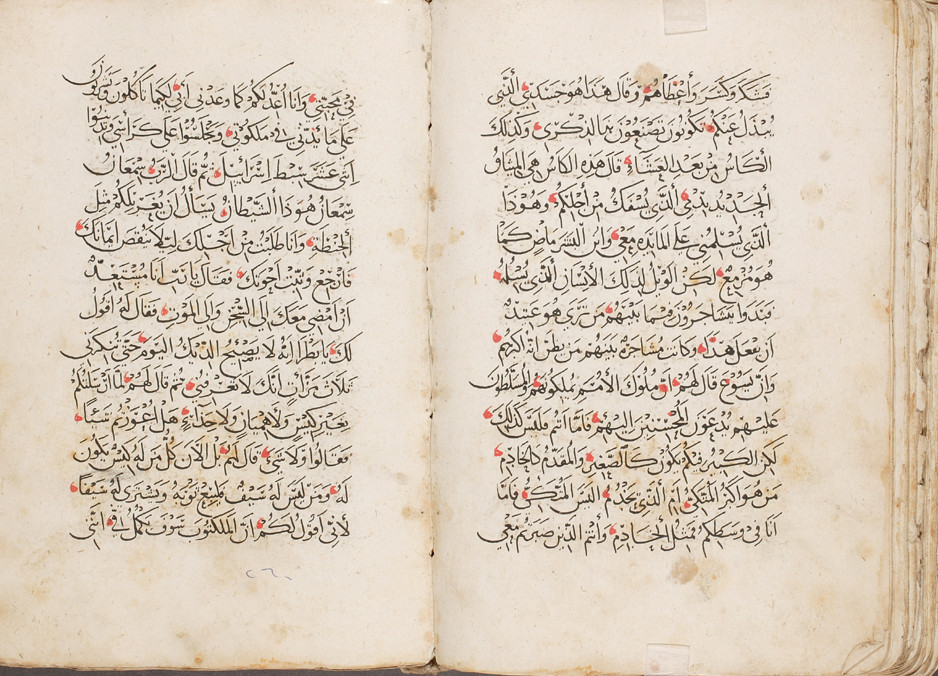 فشكر وكسر وأعطاهم وقال هذا هو جسدي الذي
يبذل عنكم تكونون تصنعون هذا لذكرى وكذلك
الكاس من بعد العشاء قال هذه الكاس هي الميثاق
الجديد بدمي الذي يسفك من أجلكم وهوذا
الذي يسلمني على المايده معي وابن البشر ماض كما
هو مزمع لكن الويل لذلك الانسان الذي يسلمه
فبدوا يتشاجرون فيما بينهم من ترى هو عتيد
ان يفعل هذا وكانت مشاجره بينهم من يظن انه اكبرهم
وان يسوع قال لهم ان ملوك الأمم يملكونهم والمسلطون
عليهم يدعون المحسنين اليهم فاما انتم فليس كذلك
لكن الكبير فيكم يكون كالصغير والمقدم كالخادم
من هو اكبر المتكئ ام الذي يخدم اليس المتكئ فاما
انا في وسطكم فمثل الخادم وأنتم الذين صبرتم معي
في محنتي وانا أعد لكم كما وعدني أبي لكيما تأكلون وتشربون
على مائدتي في ملكوتي وتجلسوا على كراسي وتدينوا
اثني عشر سبط اسرائيل ثم قال الرب سمعان
سمعان هوذا الشيطان يسأل ان يغربلكم مثل
الحنطة وانا طلبت من اجلك ليلا ينقص ايمانك
فارجع وثبت اخوتك فقال يا رب انا مستعد
ان امضي معك إلى السجن وإلى الموت فقال له اقول
لك يا بطرس انه لا يصيح الديك اليوم حتى تنكرني
ثلاث مرات انك لا تعرفني ثم قال لهم لما ارسلتكم
بغير كيس ولا هميان ولا حذاء هل اعوزتم شيئا
فقالوا ولا شي قال لهم بل الان كل من له كيس يكون
له ومن ليس له سيف فليبع ثوبه ويشتري له سيفا
لأني اقول لكم ان المكتوب سوف يكمل في انني
٢٦٠